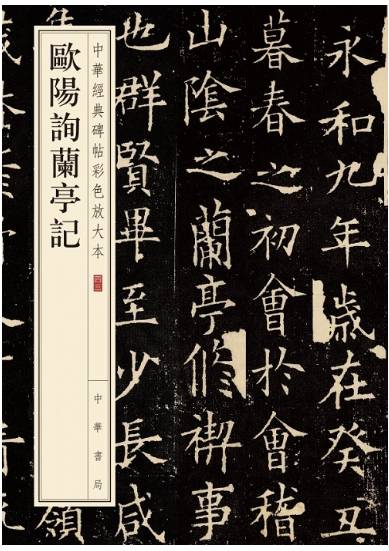 中華經典碑帖彩色放大本
歐陽詢蘭亭記
中華書局
永和九年歲在癸丑
暮春之初會於會稽
山陰之蘭亭脩禊事
也群賢畢至少長咸
集
領